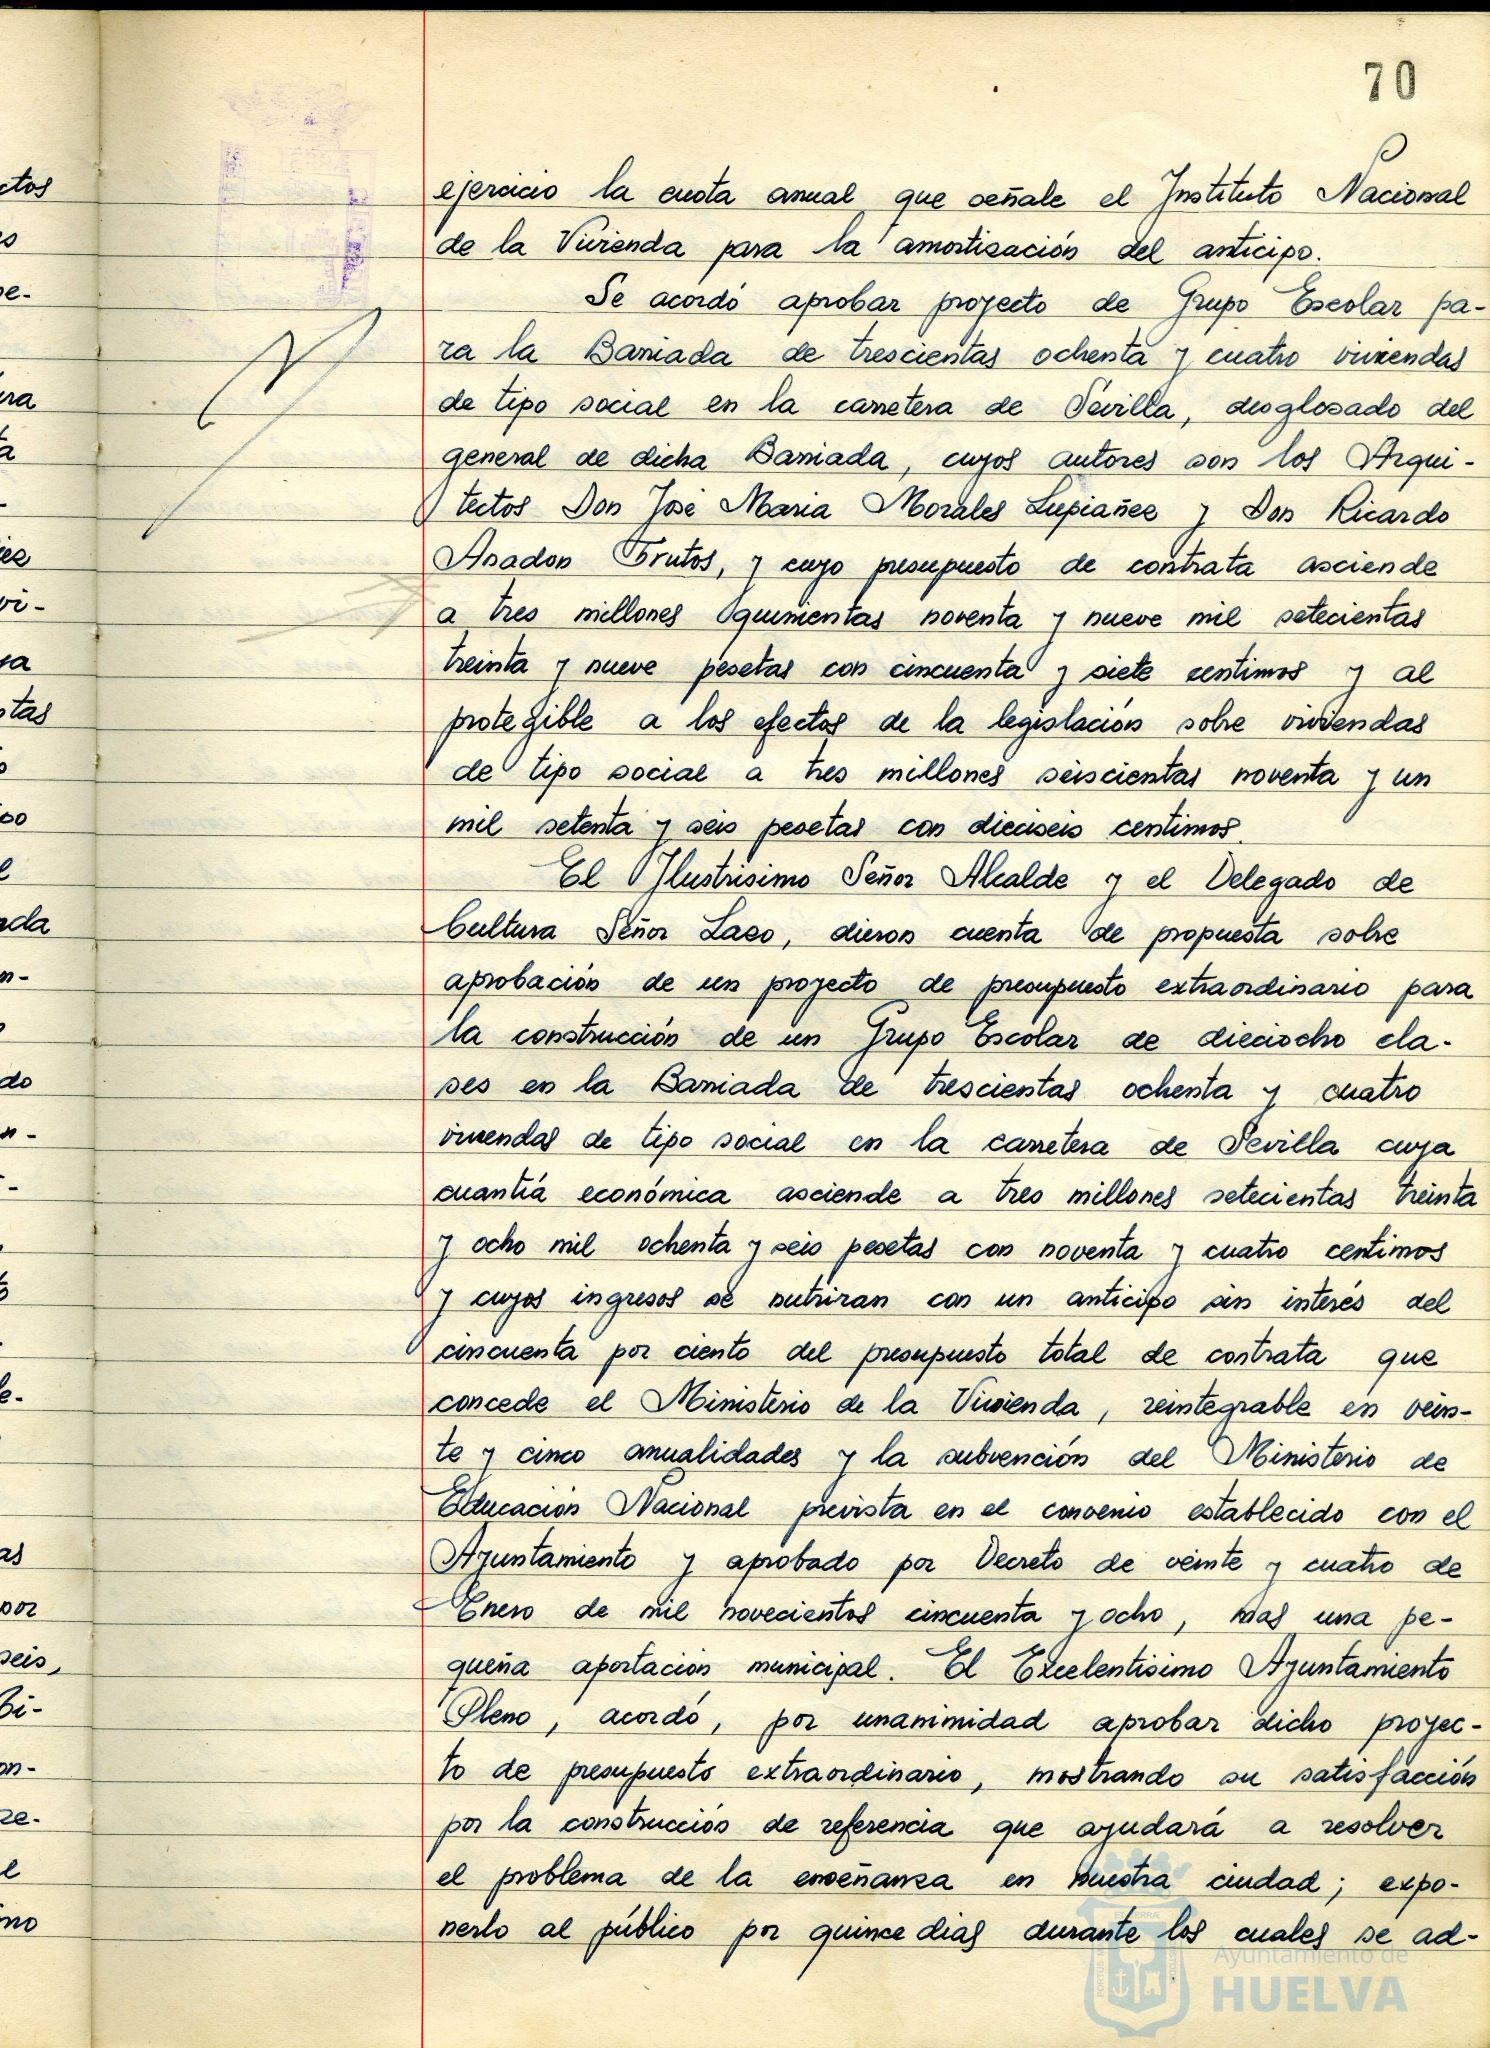 70
ctos
ejercicio la cuota anual que señale el Instituto Nacional
de la Vivienda para la amortización del anticipo.
Se acordó aprobar proyecto de Grupo Escolar pa-
ra la Barriada de trescientas ochenta y cuatro viviendas
de tipo social en la carretera de Sevilla, desglosado del
general de dicha Barriada, cuyos autores son los Arqui-
tectos Don José Maria Morales Lupiañez y Don Ricardo
Anadon Frutos, y cuyo presupuesto de contrata asciende
a tres millones quinientas noventa y nueve mil setecientas
treinta y nueve pesetas con cincuenta y siete centimos y al
protegible a los efectos de la legislación sobre viviendas
de tipo social a tres millones seiscientas noventa y un
mil setenta y seis pesetas con dieciseis centimos.
El Ilustrisimo Señor Alcalde y el Delegado de
Cultura Señor Lazo, dieron cuenta de propuesta sobre
aprobación de un proyecto de presupuesto extraordinario para
la construcción de un Grupo Escolar de dieciocho cla-
ses en la Barriada de trescientas ochenta y cuatro
viviendas de tipo social en la carretera de Sevilla cuya
cuantía económica asciende a tres millones setecientas treinta
y ocho mil ochenta y seis pesetas con noventa y cuatro centimos
y cuyos ingresos se nutriran con un anticipo sin interés del
cincuenta por ciento del presupuesto total de contrata que
concede el Ministerio de la Vivienda, reintegrable en vein-
te y cinco anualidades y la subvención del Ministerio de
Educación Nacional prevista en el convenio establecido con el
Ayuntamiento y aprobado por Decreto de veinte y cuatro de
Enero de mil novecientos cincuenta y ocho, mas una pe-
queña aportación municipal. El Excelentisimo Ayuntamiento
Pleno, acordó, por unanimidad aprobar dicho proyec-
to de presupuesto extraordinario, mostrando su satisfacción
por la construcción de referencia que ayudará a resolver
el problema de la enseñanza en nuestra ciudad; expo-
nerlo al público por quince dias durante los cuales se ad-
Ayuntamiento de
HUELVA